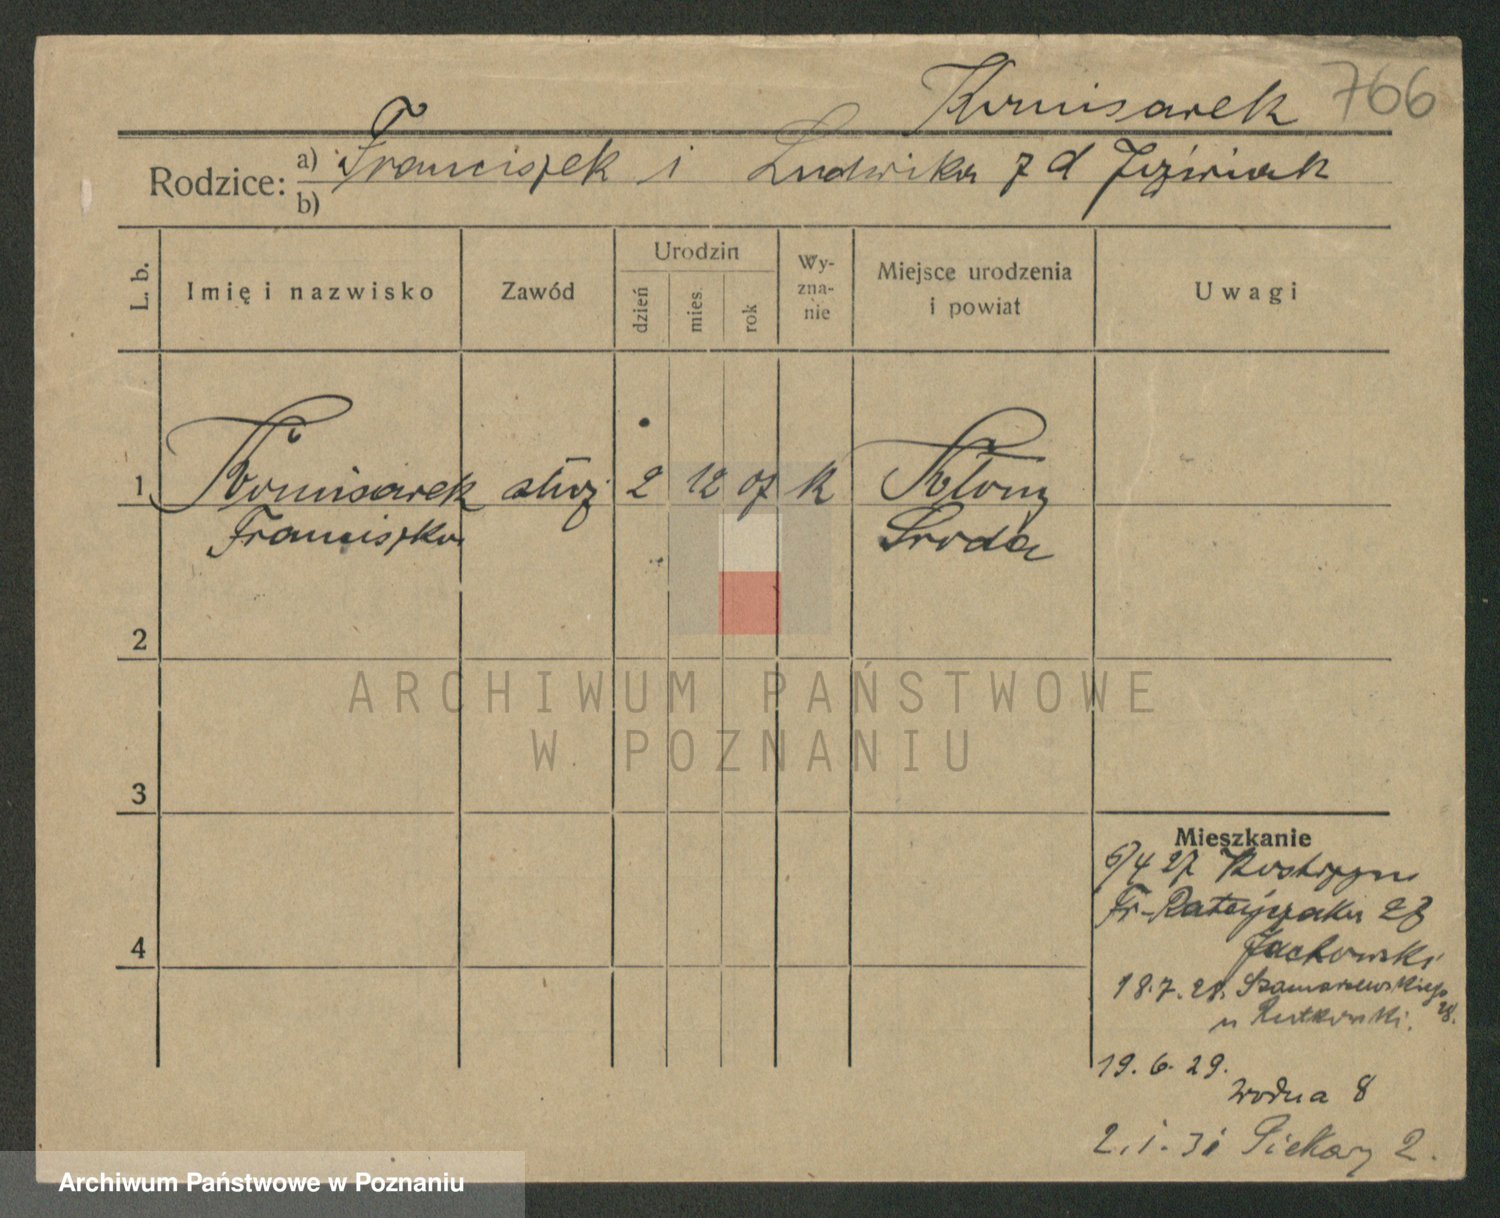 Komisarek 766
Rodzice: a) Franciszek i Ludwika z d Jóźwiak
b)
L. b.
Imię i nazwisko
Zawód
Urodzin
dzień
mies.
rok
Wy-
zna-
nie
Miejsce urodzenia
i powiat
Uwagi
1 Komisarek służ 2 12 07 K
Franciszka Środa
2
ARCHIWUM PAŃSTWOWE
W POZNANIU
3
Mieszkanie
6/4 27 Kostrzyn
Fr. Ratajczaka 28
Jachowski
4
18.7.28. Szamarzewskiego 28.
u Rutkowski.
19. 6. 29.
Wodna 8
2. 1. 31 Piekary 2.
Archiwum Państwowe w Poznaniu